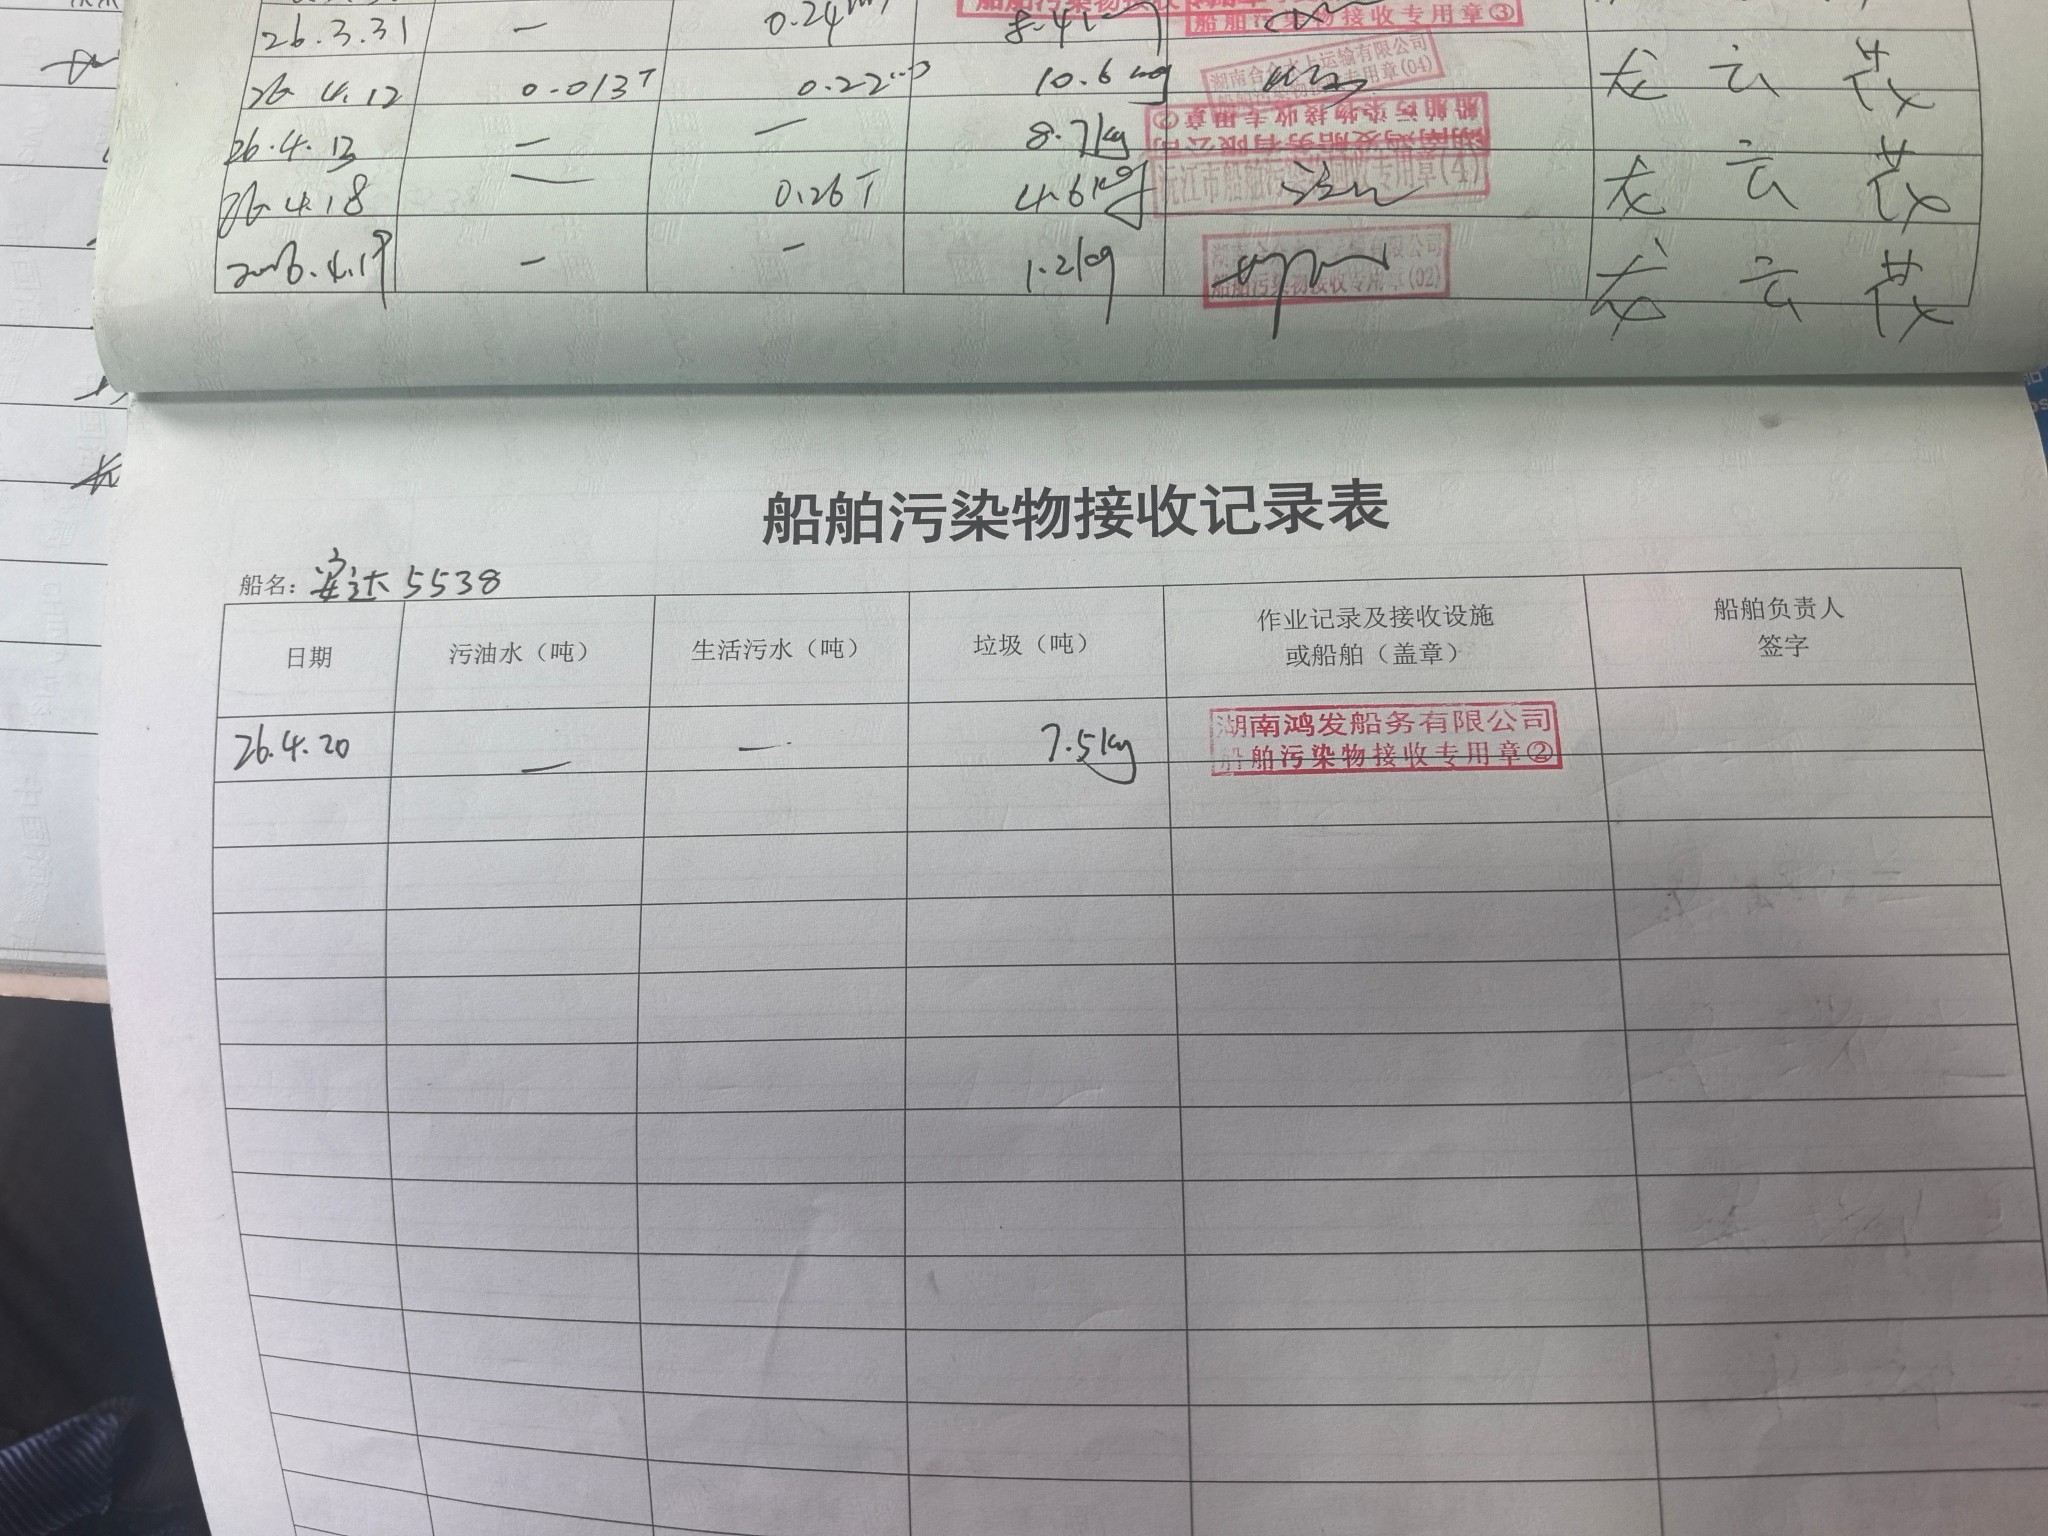 26.3.31 — 0.24
26.4.12 0.013T 0.22 10.6kg 湖南合众水上运输有限公司
专用章(04)
26.4.13 — — 8.7kg 湖南鸿发船务有限公司
船舶污染物接收专用章②
26.4.18 — 0.26T 4.6kg 沅江市船舶污染物回收专用章(4)
2026.4.19 — — 1.2kg 湖南合众水上运输有限公司
船舶污染物接收专用章(02)
船舶污染物接收专用章③
船舶污染物接收记录表
船名：安达5538
日期 污油水（吨） 生活污水（吨） 垃圾（吨） 作业记录及接收设施
或船舶（盖章） 船舶负责人
签字
26.4.20 — — 7.5kg 湖南鸿发船务有限公司
船舶污染物接收专用章②